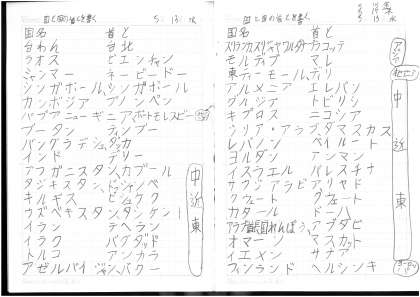 国と国の首とを書く 5 13 水
国名 首と
台わん 台北
ラオス ビエンチャン
ミャンマー ネーピードー
シンガポール シンガポール
カンボジア プノンペン
パプアニューギニア ポートモレスビー
ブータン ティンプー
バングラデシュ ダッカ
インド デリー
アフガニスタン カブール
タジキスタン ドゥシャンベ
キルギス ビシュケク
ウズベキスタン タシケント
イラン テヘラン
イラク バグダッド
トルコ アンカラ
アゼルバイジャン バクー
中近東
国と国の首とを書く 5 13 水
国名 首と
スリジャヤワルダナプラコッテ
モルディブ マレ
東ティモール ディリ
アルメニア エレバン
グルジア トビリシ
キプロス ニコシア
シリア・アラブ ダマスカス
レバノン ベイルート
ヨルダン アンマン
イスラエル パレスチナ
サウジアラビア リヤド
クウェート クウェート
カタール ドーハ
アラブ首長国れんぽう アブダビ
オマーン マスカット
イエメン サナア
フィンランド ヘルシンキ
アジア
中近東